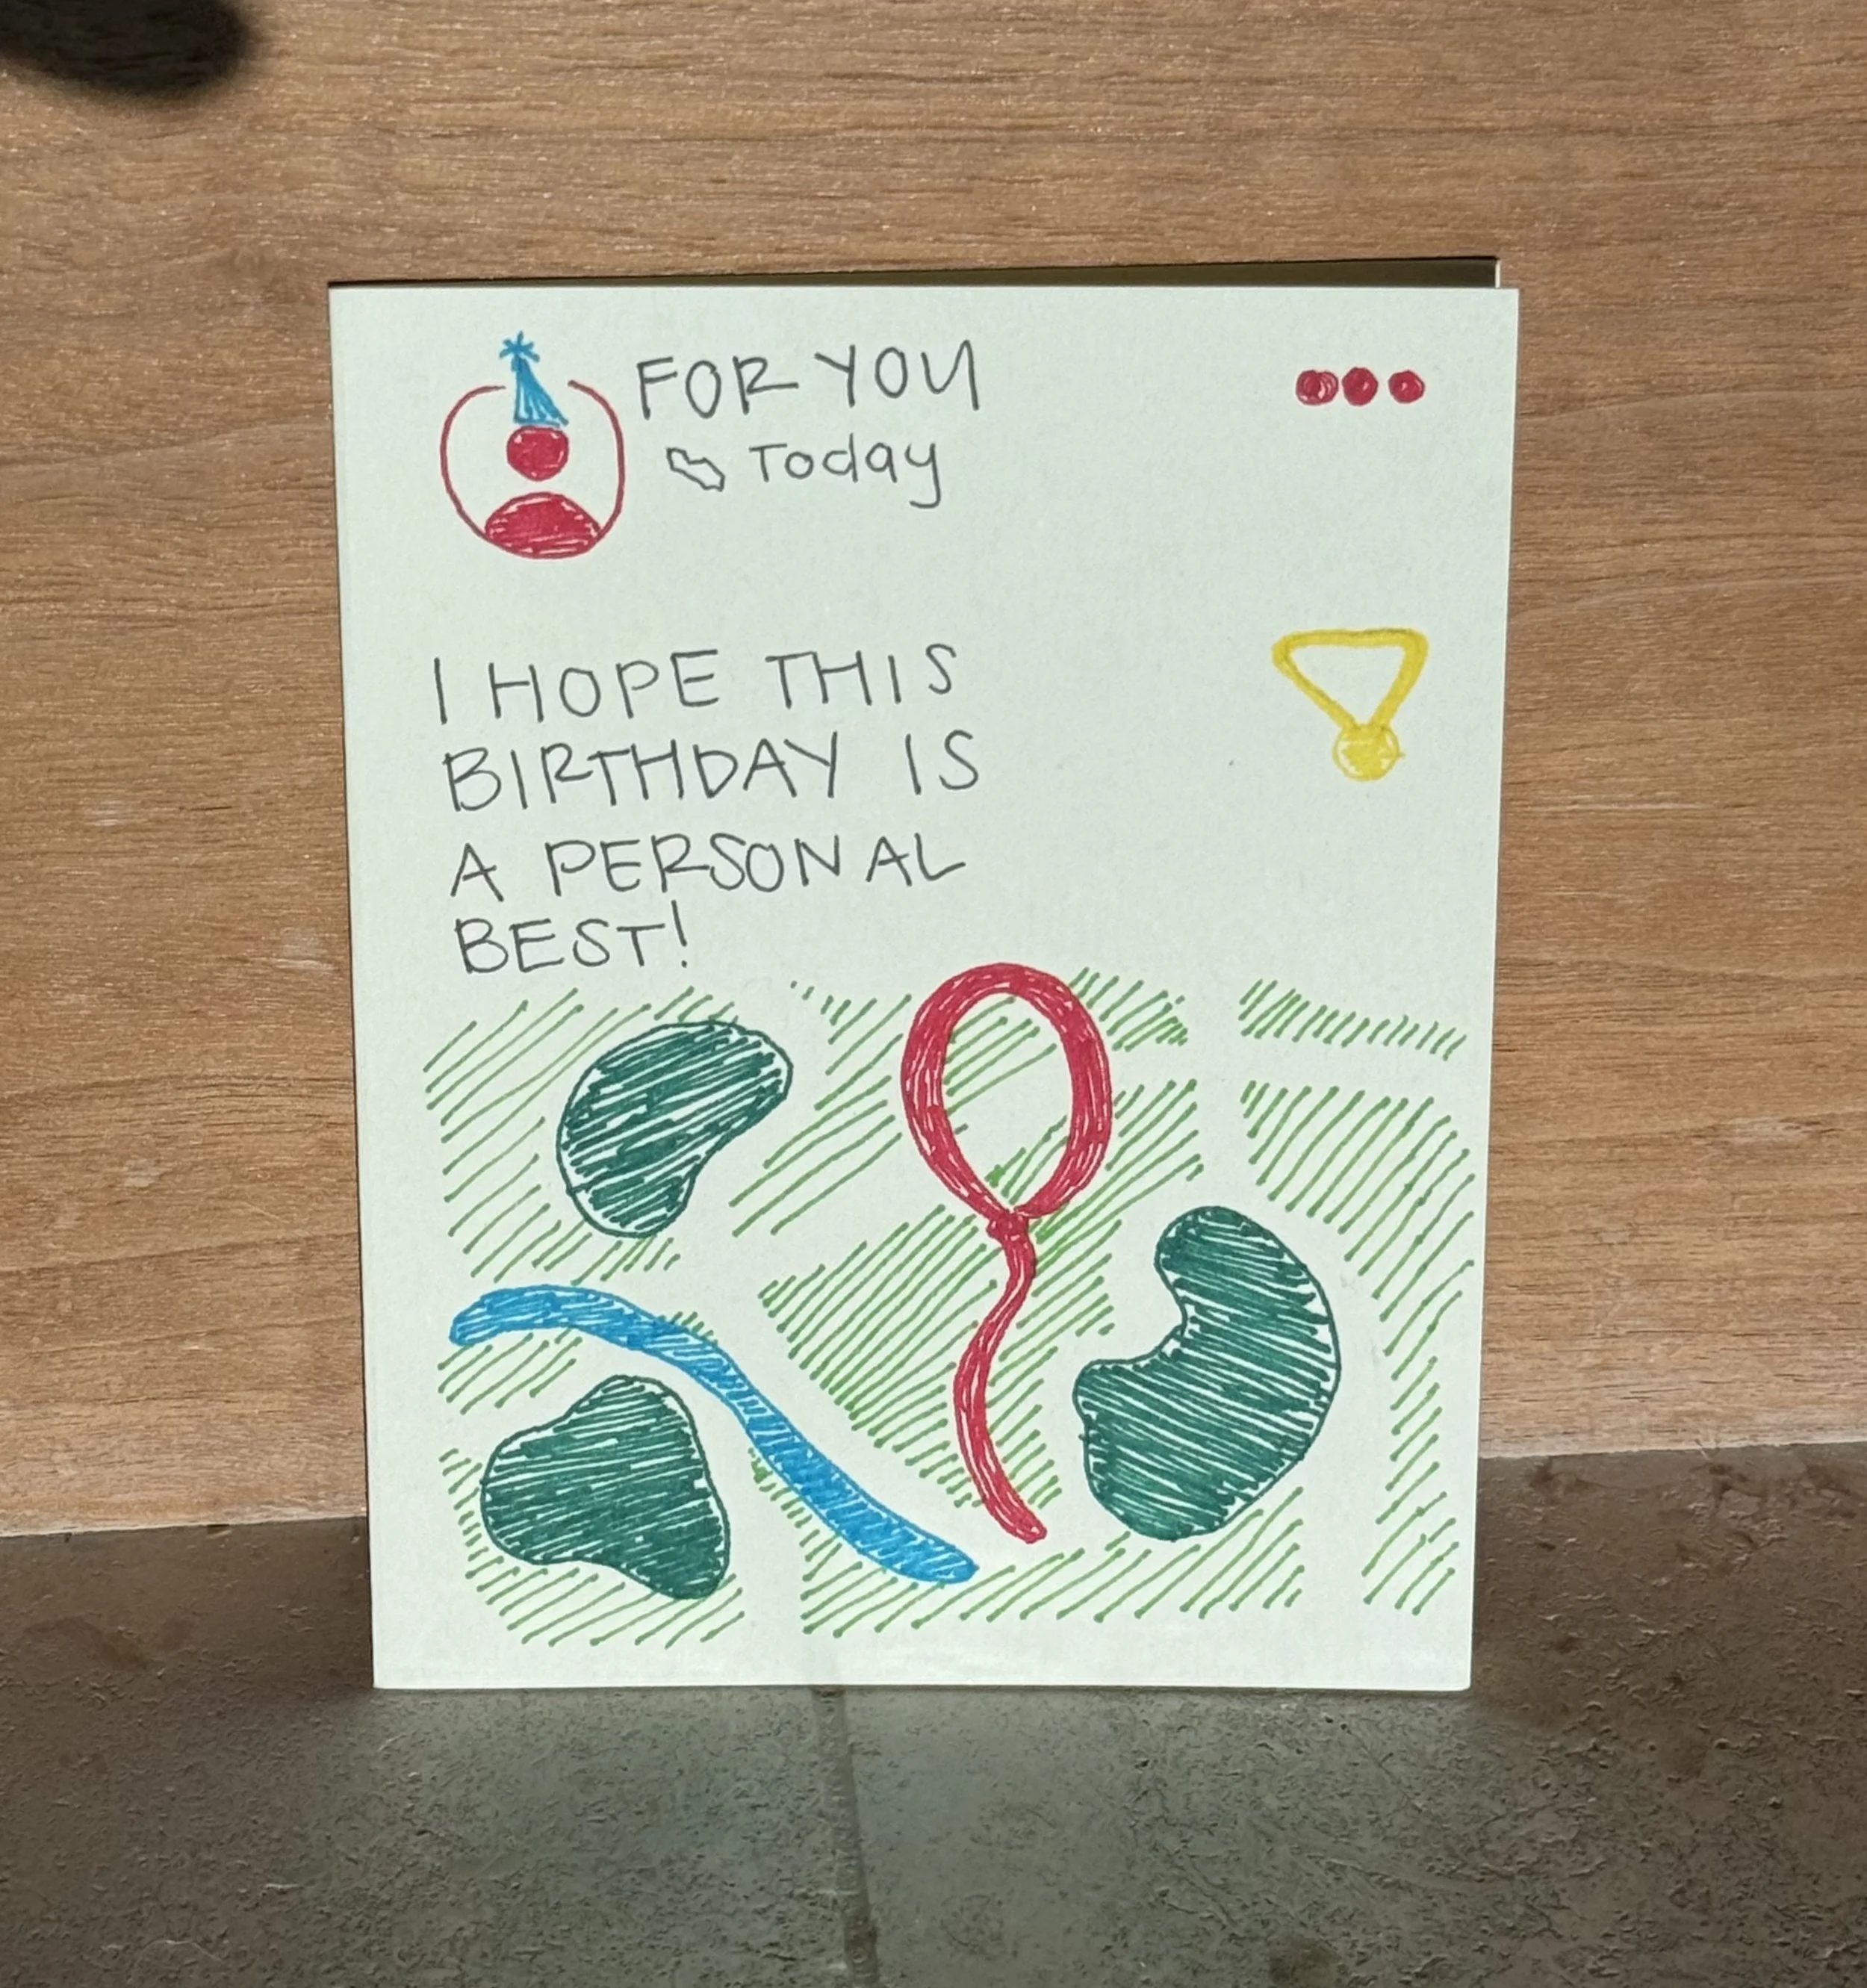 FOR YOU
Today
I HOPE THIS
BIRTHDAY IS
A PERSONAL
BEST!